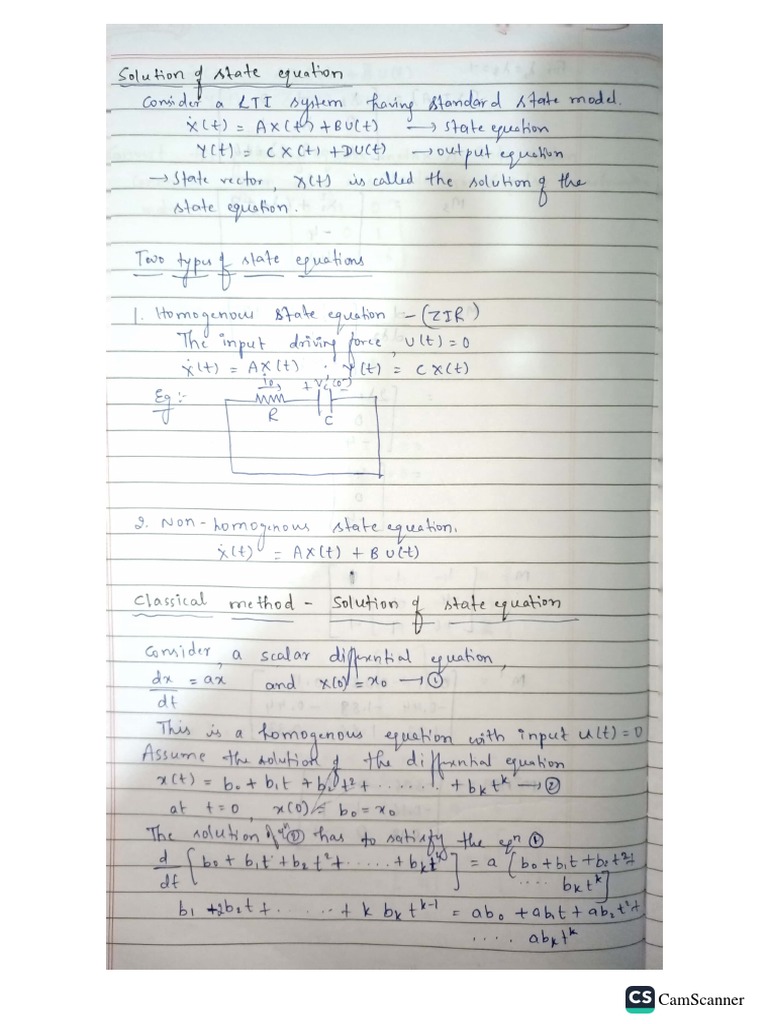 Solution of state equation
Consider a LTI system having standard state model.
ẋ(t) = AX(t) + BU(t) → state equation
Y(t) = CX(t) + DU(t) → output equation
→ State vector, x(t) is called the solution of the
state equation.
Two types of state equations
1. Homogenous state equation - (ZIR)
The input driving force, U(t) = 0
ẋ(t) = AX(t) ; Y(t) = CX(t)
Eg :-
R
C
2. Non-homogenous state equation.
ẋ(t) = AX(t) + BU(t)
Classical method - Solution of state equation
Consider, a scalar differential equation,
dx/dt = ax and x(0) = x₀ → ①
This is a homogenous equation with input u(t) = 0
Assume the solution of the differntial equation
x(t) = b₀ + b₁t + b₂t² + ....... + bₖtᵏ → ②
at t=0, x(0) = b₀ = x₀
The solution of eqⁿ② has to satisfy the eqⁿ ①
d/dt [b₀ + b₁t + b₂t² + ..... + bₖtᵏ] = a [b₀ + b₁t + b₂t² +
.... bₖtᵏ]
b₁ + 2b₂t + ....... + k bₖtᵏ⁻¹ = ab₀ + ab₁t + ab₂t² +
.... abₖtᵏ
CS CamScanner